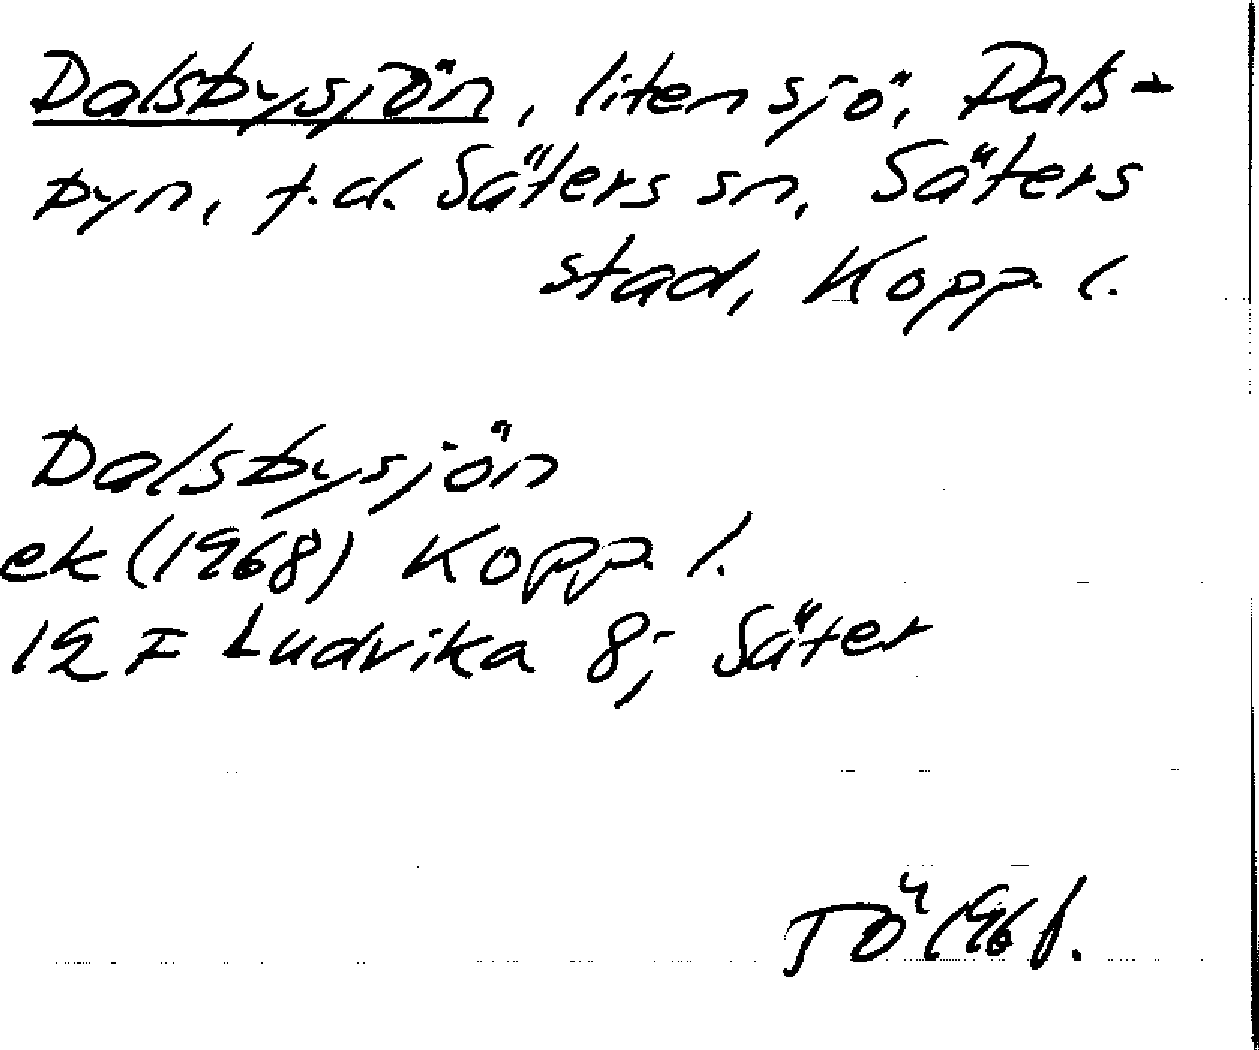 Dalsbysjön, liten sjö, Dals-
byn, f.d. Säters sn, Säters
stad, Kopp. l.
Dalsbysjön
ek (1968) Kopp. l.
12 F Ludvika 8; Säter
TÖ 196